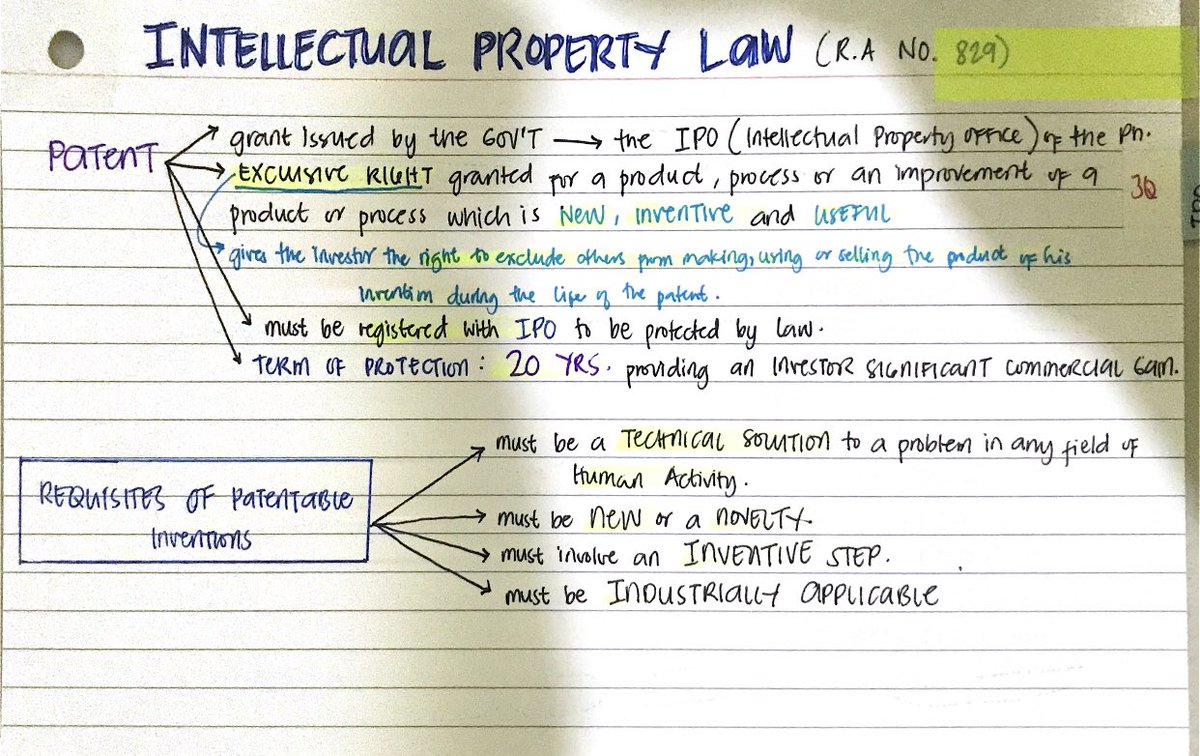 INTELLECTUAL PROPERTY LAW (R.A NO. 829)
PATENT
grant issued by the GOV'T → the IPO (Intellectual Property OFFICE) of the Ph.
EXCLUSIVE RIGHT granted for a product, process or an improvement of a
36
product or process which is NEW, INVENTIVE and USEFUL
gives the investor the right to exclude others from making, using or selling the product of his
invention during the life of the patent.
must be registered with IPO to be protected by law.
TERM OF PROTECTION: 20 YRS. providing an INVESTOR SIGNIFICANT COMMERCIAL Gain.
REQUISITES OF PATENTABLE
INVENTIONS
must be a TECHNICAL SOLUTION to a problem in any field of
Human Activity.
must be NEW or a NOVELTY.
must involve an INVENTIVE STEP.
must be INDUSTRIALLY APPLICABLE